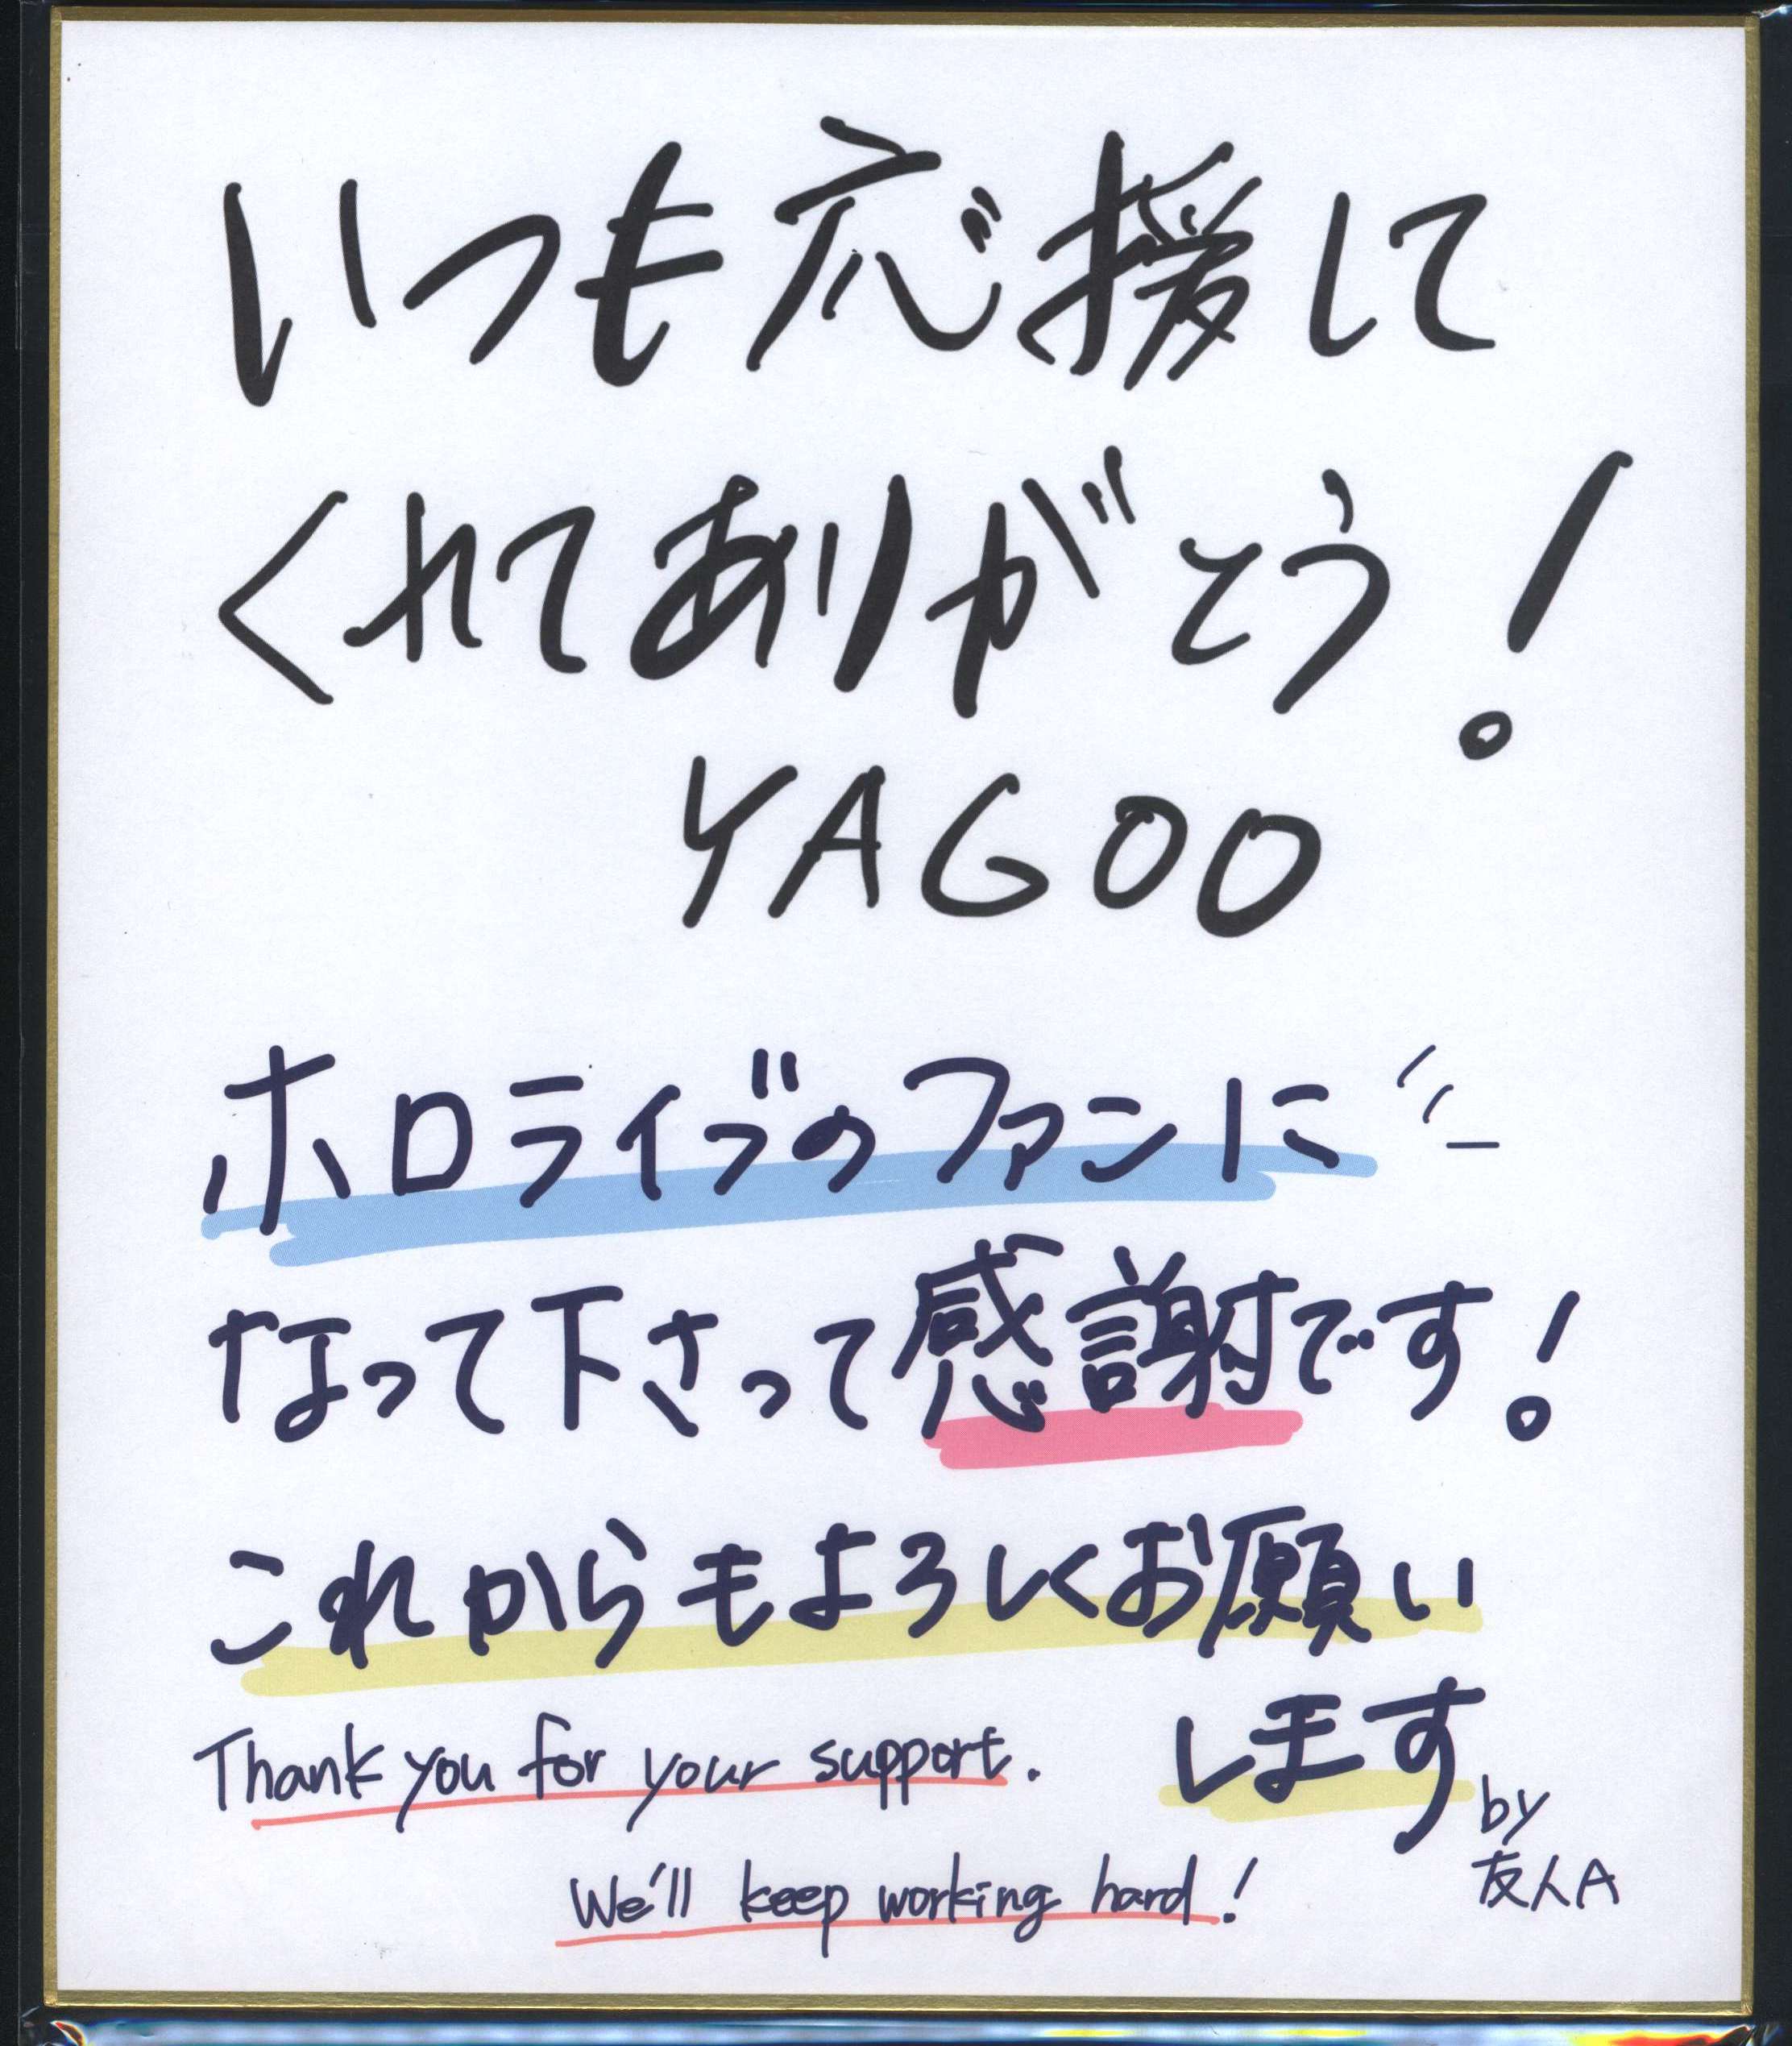 いつも応援して
くれてありがとう!
YAGOO
ホロライブのファンに
なって下さって感謝です!
これからもよろしくお願い
します
Thank you for your support.
by
友人A
We'll keep working hard!